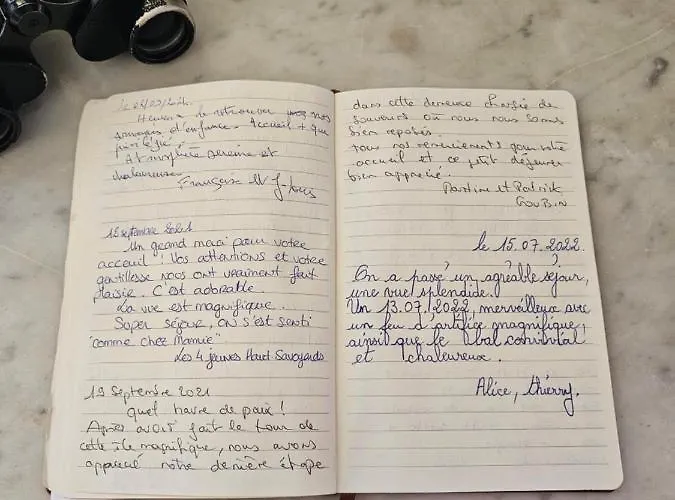 Heureux de retrouver nos
souvenirs d'enfance. Accueil + que
Atmosphère sereine et
chaleureuse
Françoise et J-Louis
12 septembre 2021
Un grand merci pour votre
acceuil ! Vos attentions et votre
gentillesse nous ont vraiment fait
plaisir. C'est adorable
La vue est magnifique.
Super séjour, on s'est senti
"comme chez Mamie"
Les 4 jeunes Haut Savoyards
19 Septembre 2021
Quel havre de paix !
Après avoir fait le tour de
cette île magnifique, nous avons
apprécié notre dernière étape
dans cette demeure chargée de
souvenirs où nous nous sommes
bien reposés.
Tous nos remerciements pour votre
accueil et ce petit déjeuner
bien apprécié.
Martine et Patrick
le 15.07.2022.
On a passé un agréable séjour,
une vue splendide.
Un 13.07.2022, merveilleux avec
un feu d'artifice magnifique,
ainsi que le bal convivial
et chaleureux.
Alice, Thierry.